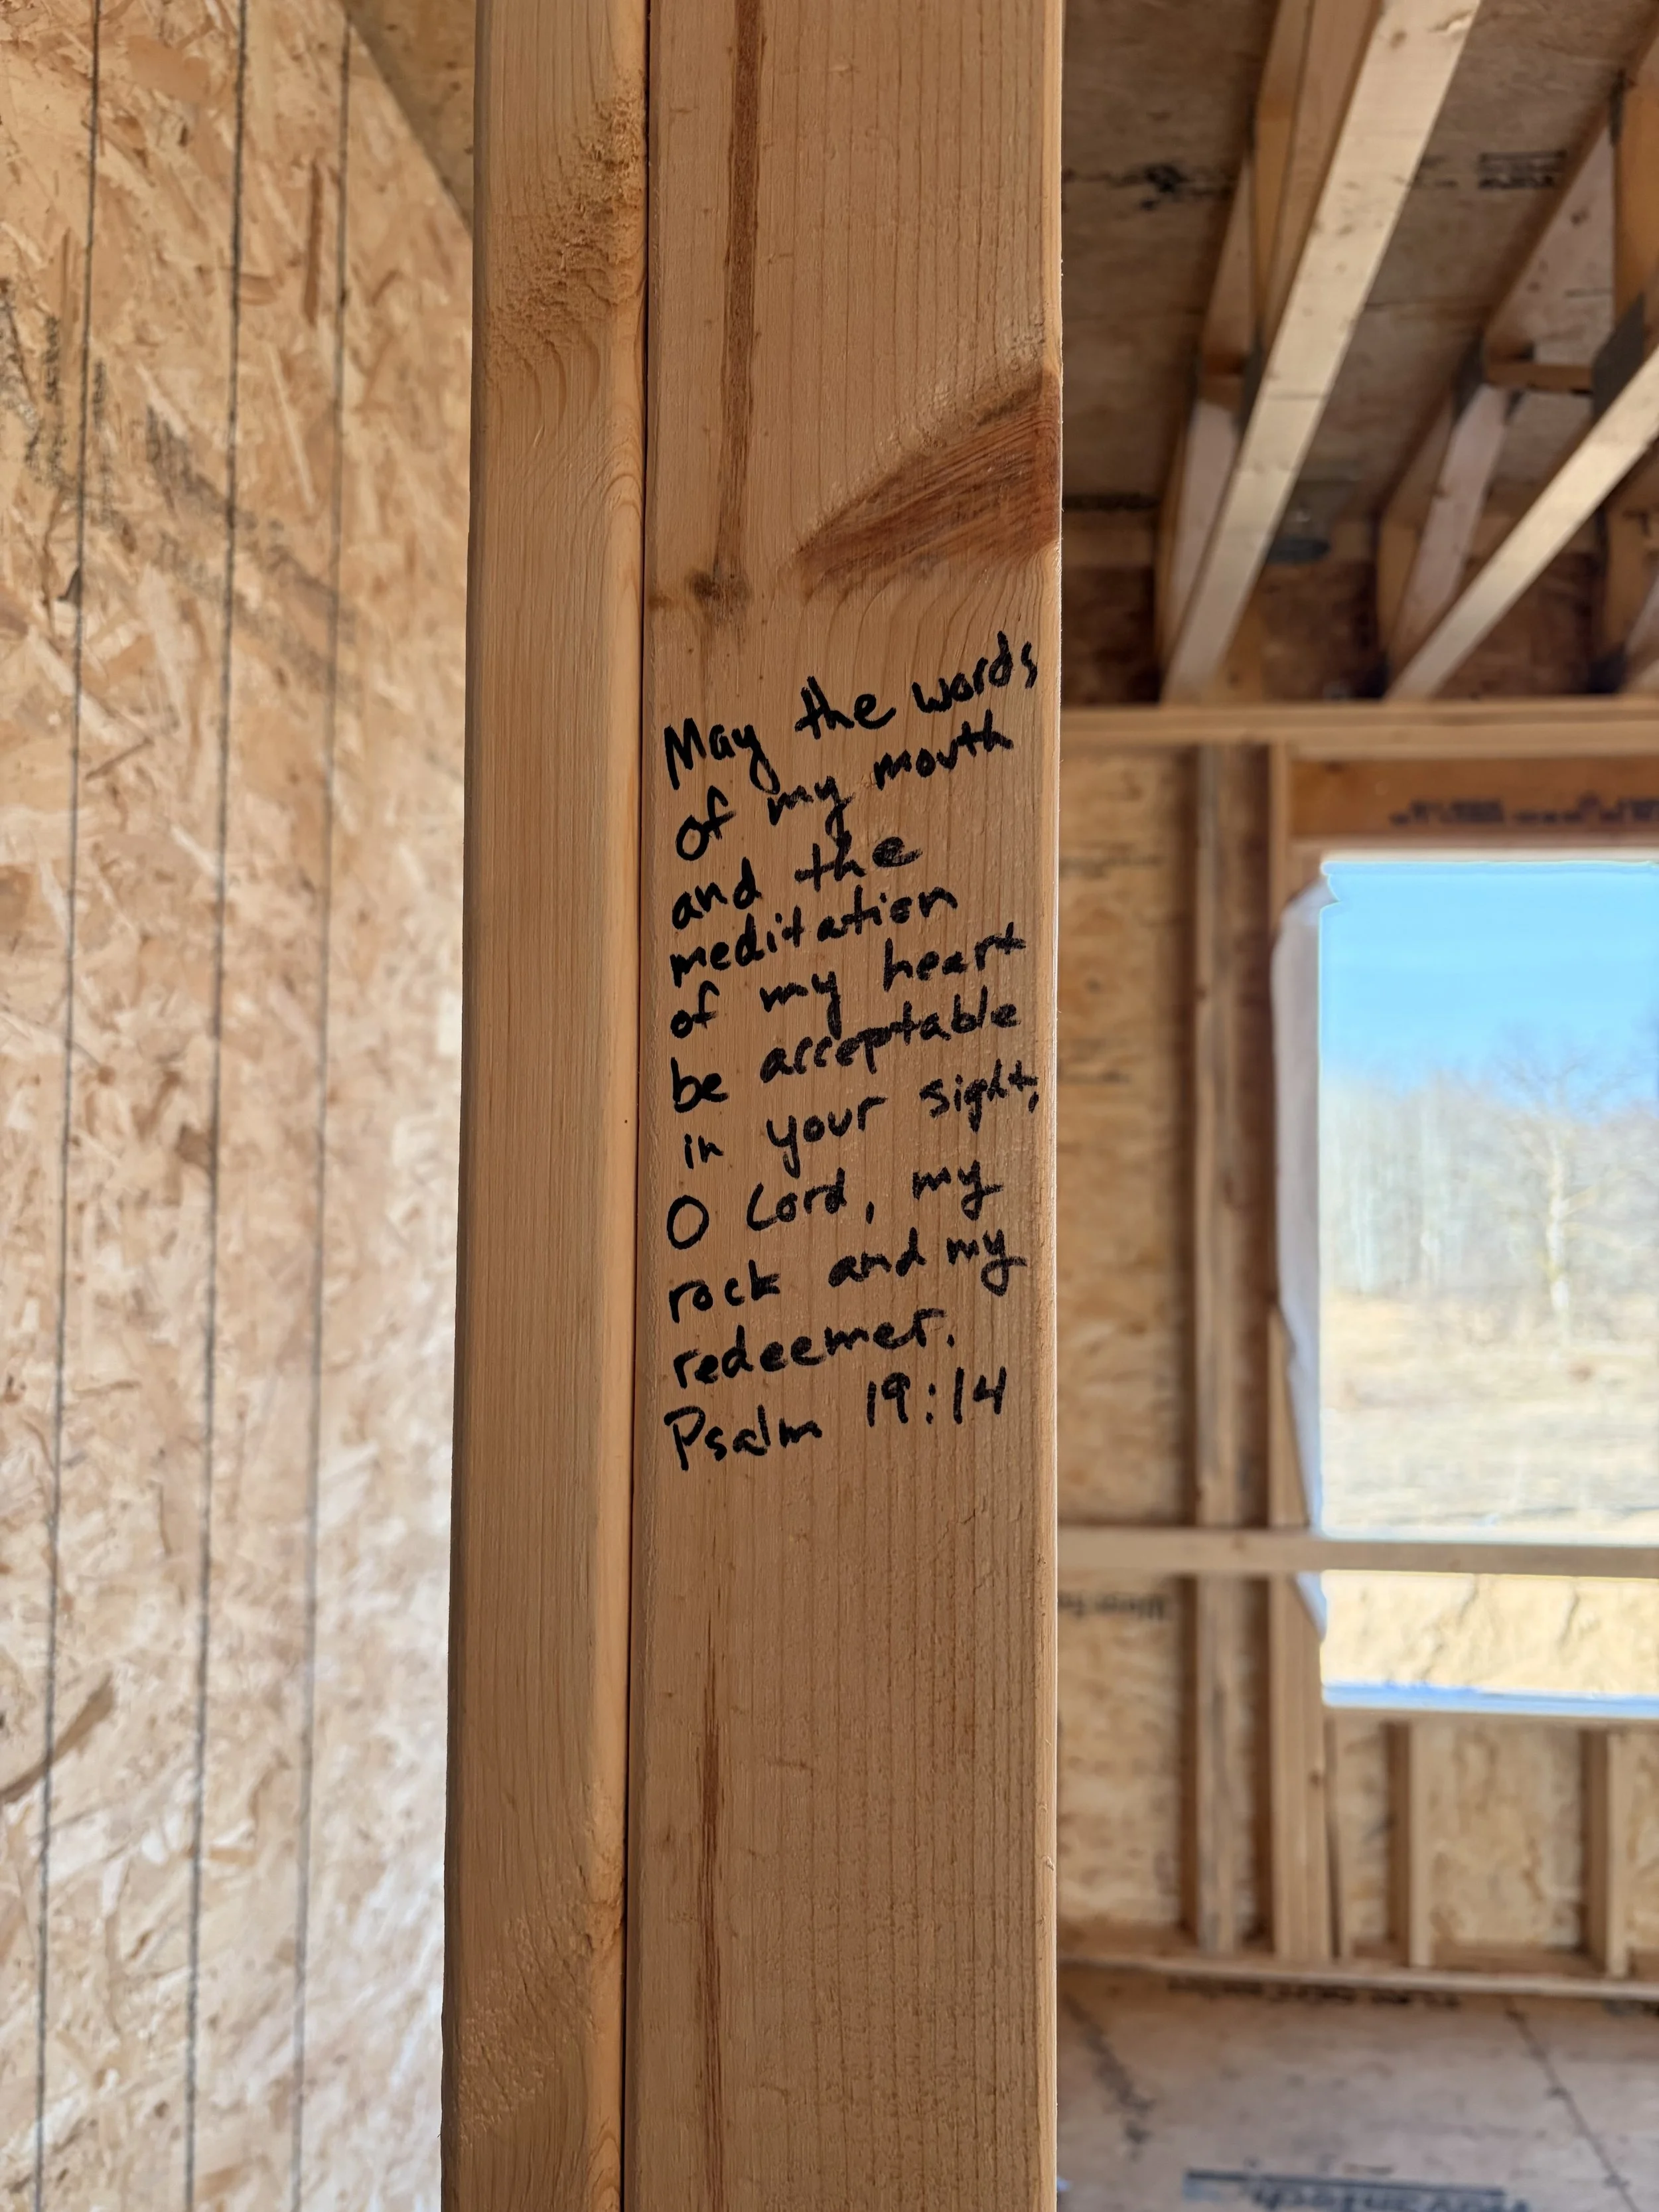 May the words
of my mouth
and the
meditation
of my heart
be acceptable
in your sight,
O Lord, my
rock and my
redeemer.
Psalm 19:14